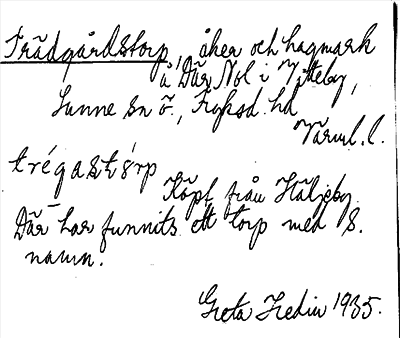 Trädgårdstorp, åker och hagmark
å Där Nol i Ytteby,
Sunne sn ö., Fryksd. hd
Värml. l.
trégastórp
Köpt från Häljeby.
Där har funnits ett torp med s.
namn.
Greta Hedin 1935.